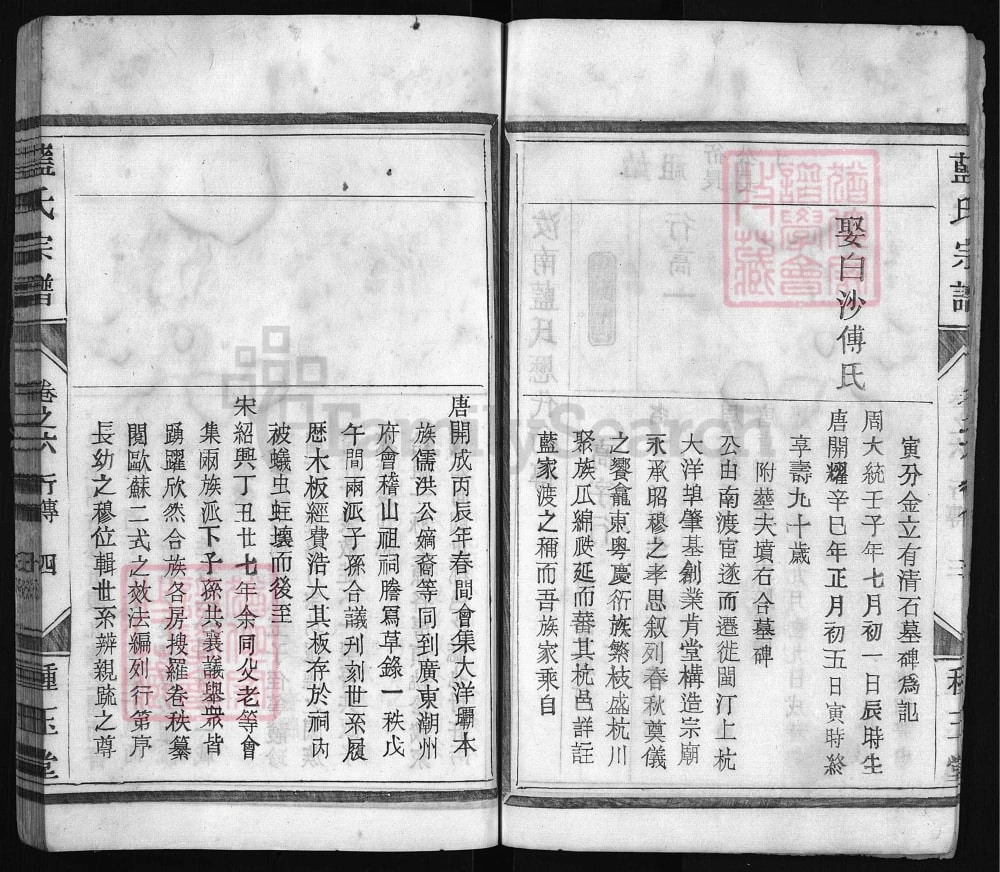 藍氏宗譜
寅分金立有清石墓碑為記
娶白沙傅氏
周大統壬子年七月初一日辰時生
唐開耀辛巳年正月初五日寅時終
享壽九十歲
附塟夫墳右合墓碑
公由南渡宦遂而遷徙閩汀上杭
大洋埧肇基創業肯堂構造宗廟
永承昭穆之孝思叙列春秋奠儀
之饗龕東粵慶衍族繁枝盛杭川
聚族瓜綿瓞延而蕃其杭邑詳註
藍家渡之稱而吾族家乘自
唐開成丙辰年春間會集大洋壩本
族儒洪公嫡裔等同到廣東潮州
府會稽山祖祠謄寫草錄一秩戊
午間兩派子孫合議刋刻世系履
歷木板經費浩大其板存於祠内
被蟻虫蛀壞而後至
宋紹興丁丑廿七年余同父老等會
集兩族派下子孫共襄議舉衆皆
踴躍欣然合族各房搜羅卷秩纂
閱歐蘇二式之效法編列行第序
長幼之穆位輯世系辨親疏之尊
藍氏宗譜
卷之六 行傳
四
種玉堂
FamilySearch